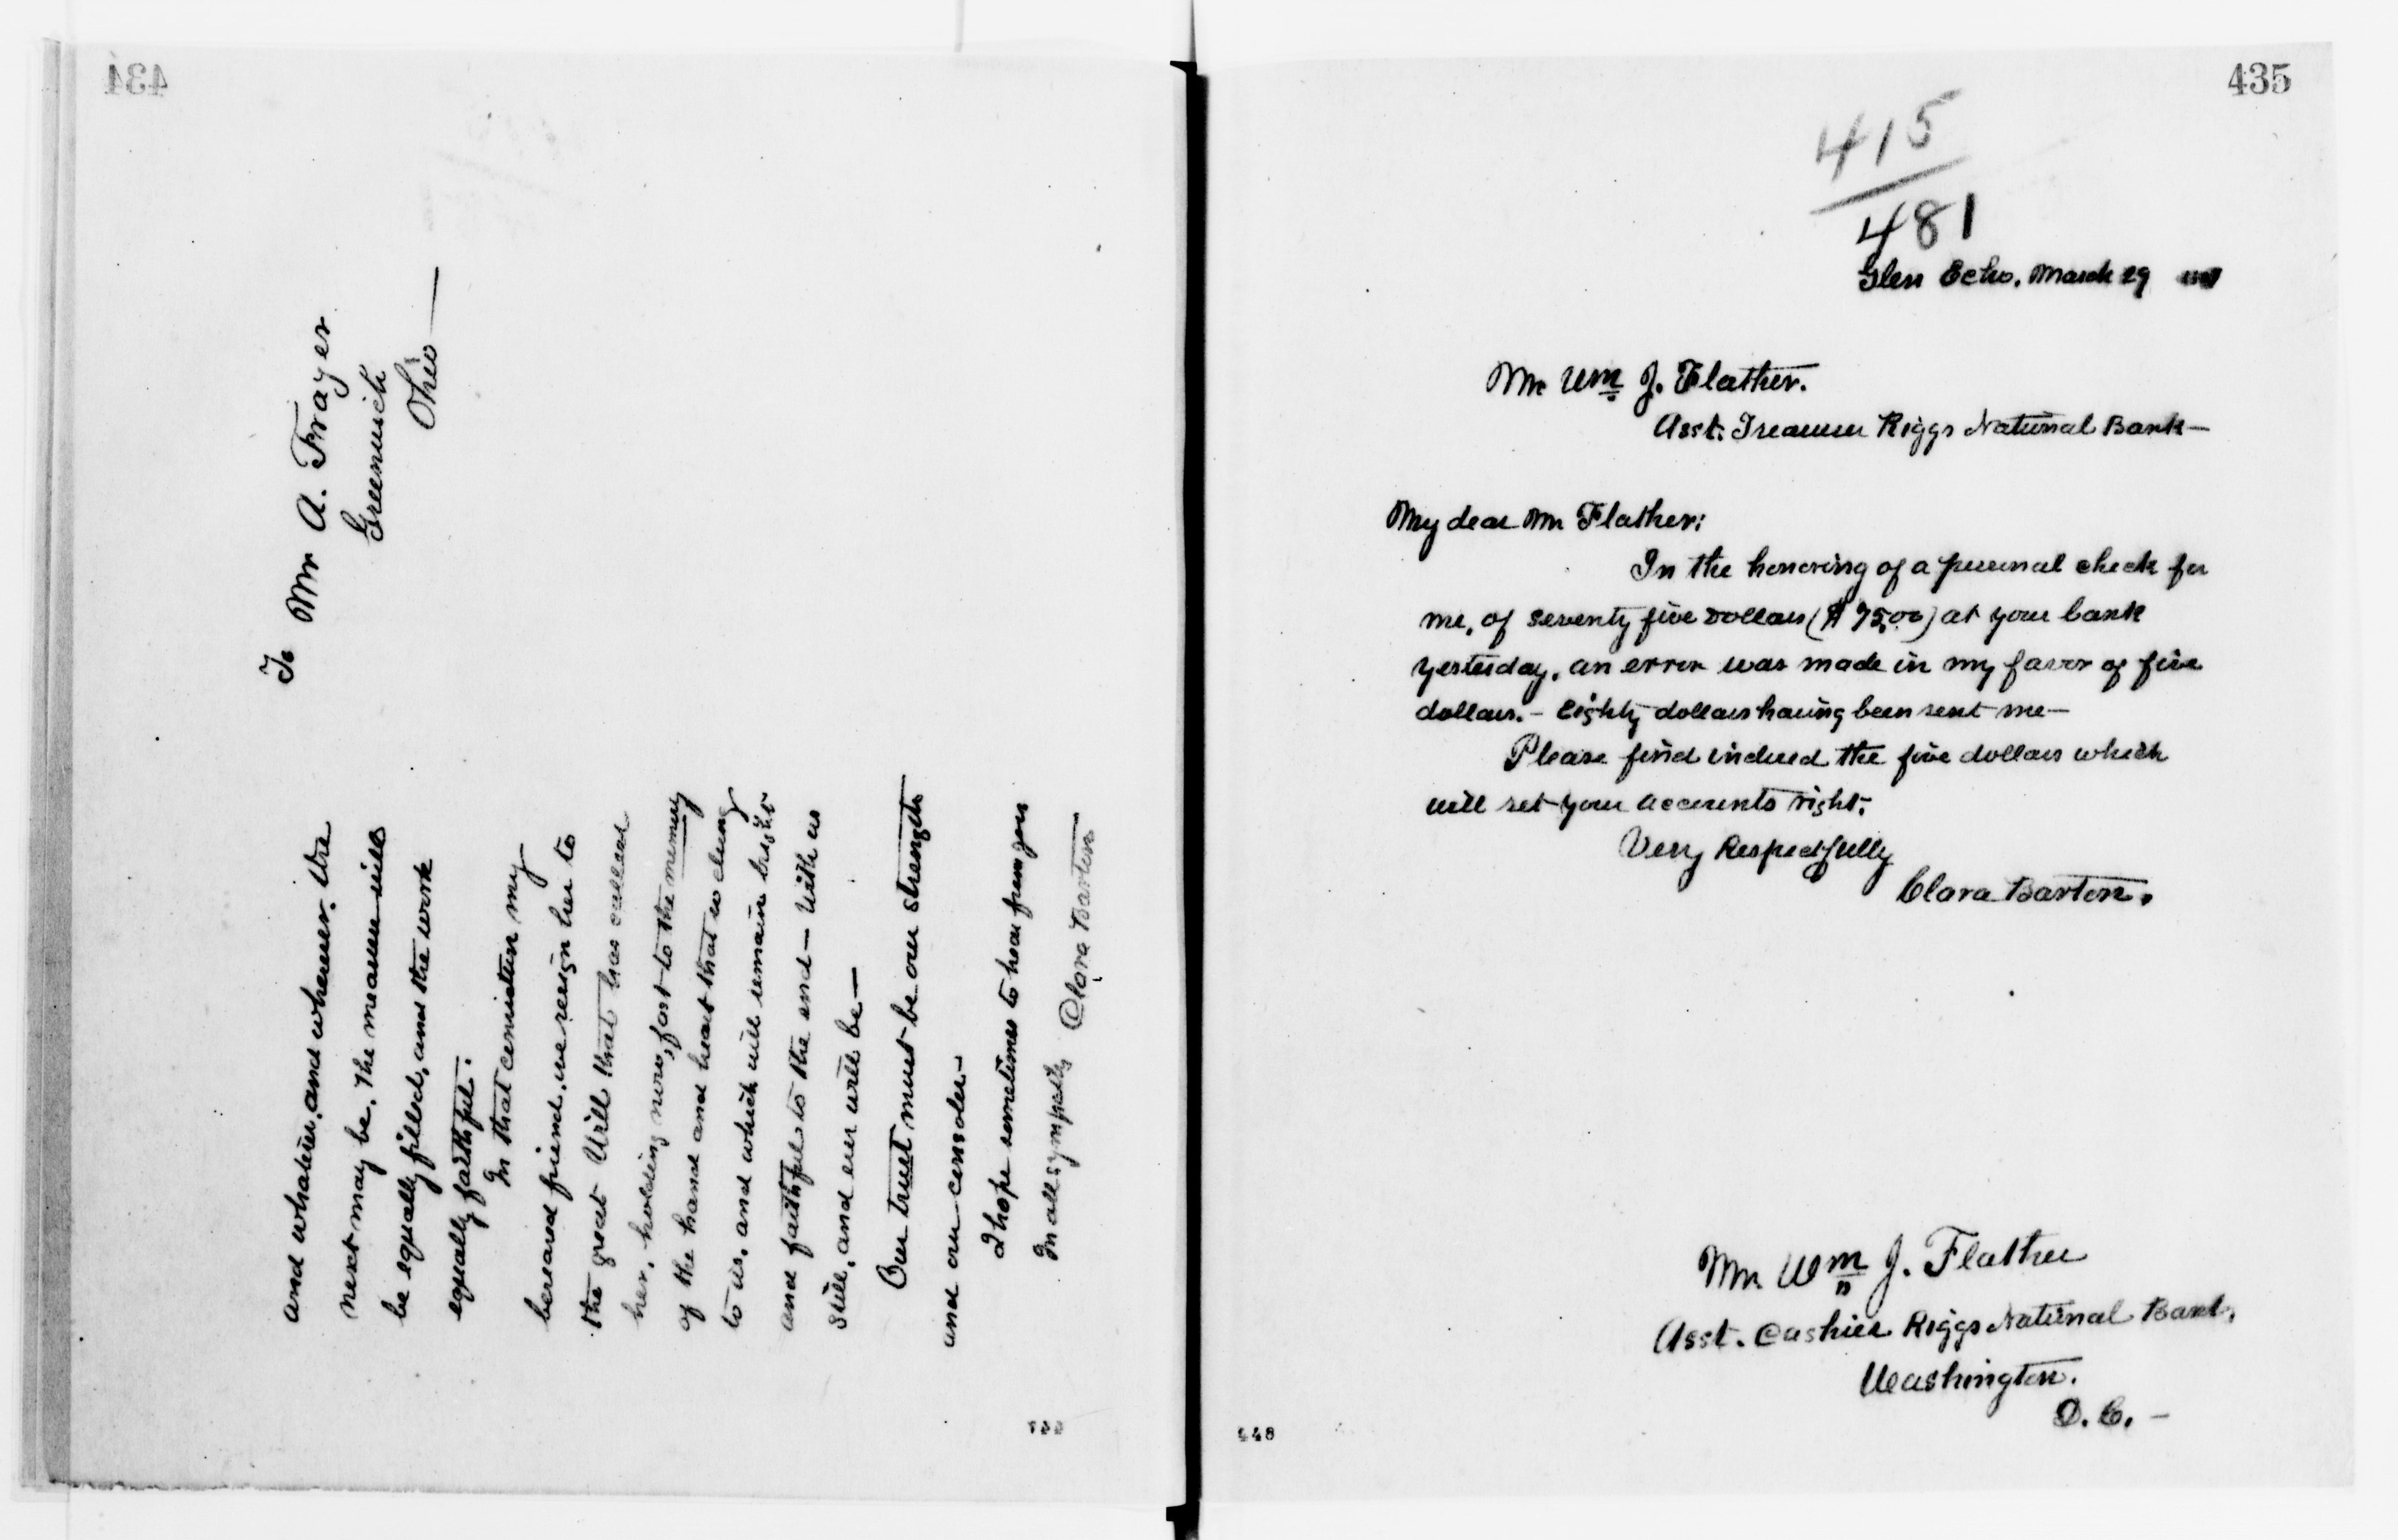 434
and whatever, and wherever, the
next may be. The measure will
be equally filled, and the work
equally faithful.
In that conviction my
bereaved friend, we resign her to
the great Will that has called
her, holding now, fast to the memory
of the hand and heart that so clung
to us, and which will remain bright
and faithful to the end — With us
still, and ever will be —
Our trust must be our strength
and our consoler —
I hope sometimes to hear from you
In all sympathy Clara Barton
To Mr A. Frayer
Greenwich
Ohio —
435
415
481
Glen Echo. March 29
Mr Wm J. Flather.
Asst. Treasurer Riggs National Bank —
My dear Mr Flather:
In the honoring of a personal check for
me, of seventy five Dollars ($75.00) at your bank
yesterday, an error was made in my favor of five
dollars. — Eighty dollars having been sent me —
Please find inclosed the five dollars which
will set your accounts right.
Very Respectfully
Clara Barton.
Mr. Wm J. Flather
Asst. Cashier Riggs National Bank,
Washington.
D. C. —
448